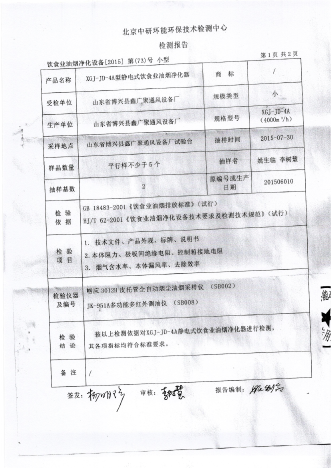 北京中研环能环保技术检测中心
检测报告
饮食业油烟净化设备[2015] 第(73)号 小型 第 1 页 共 2 页
产品名称 XGJ-JD-4A型静电式饮食业油烟净化器 商 标 /
受检单位 山东省博兴县鑫广聚通风设备厂 规模类型 小
生产单位 山东省博兴县鑫广聚通风设备厂 规格型号 XGJ-JD-4A (4000m³/h)
采样地点 山东省博兴县鑫广聚通风设备厂试验台 抽样时间 2015-07-30
样品数量 平行样不少于5个 抽样者 姚生临 李树慧
抽样基数 2 原编号或生产日期 201506010
检 验 依 据
GB 18483-2001《饮食业油烟排放标准》(试行)
HJ/T 62-2001《饮食业油烟净化设备技术要求及检测技术规范》(试行)
检 验 项 目
1. 技术文件、产品外观、标牌、说明书
2.本体阻力、极板间绝缘电阻、控制箱接地电阻
3. 烟气含水率、本体漏风率、去除效率
检验仪器及编号
崂应3012H皮托管全自动烟尘油烟采样仪 (SB002)
JK-951A多功能多红外测油仪 (SB008)
检 验 结 论
按以上检测依据对XGJ-JD-4A静电式饮食业油烟净化器进行检测,
其各项指标均符合标准要求。
备 注 /
签发: 审核: 报告编制: